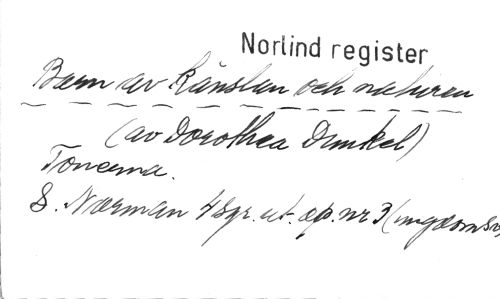 Norlind register
Barn av känslan och naturen
(av Dorothea Dunkel)
Tonerna.
S. Norman 4 sgr. ut. op. nr 3 (ungdomsv